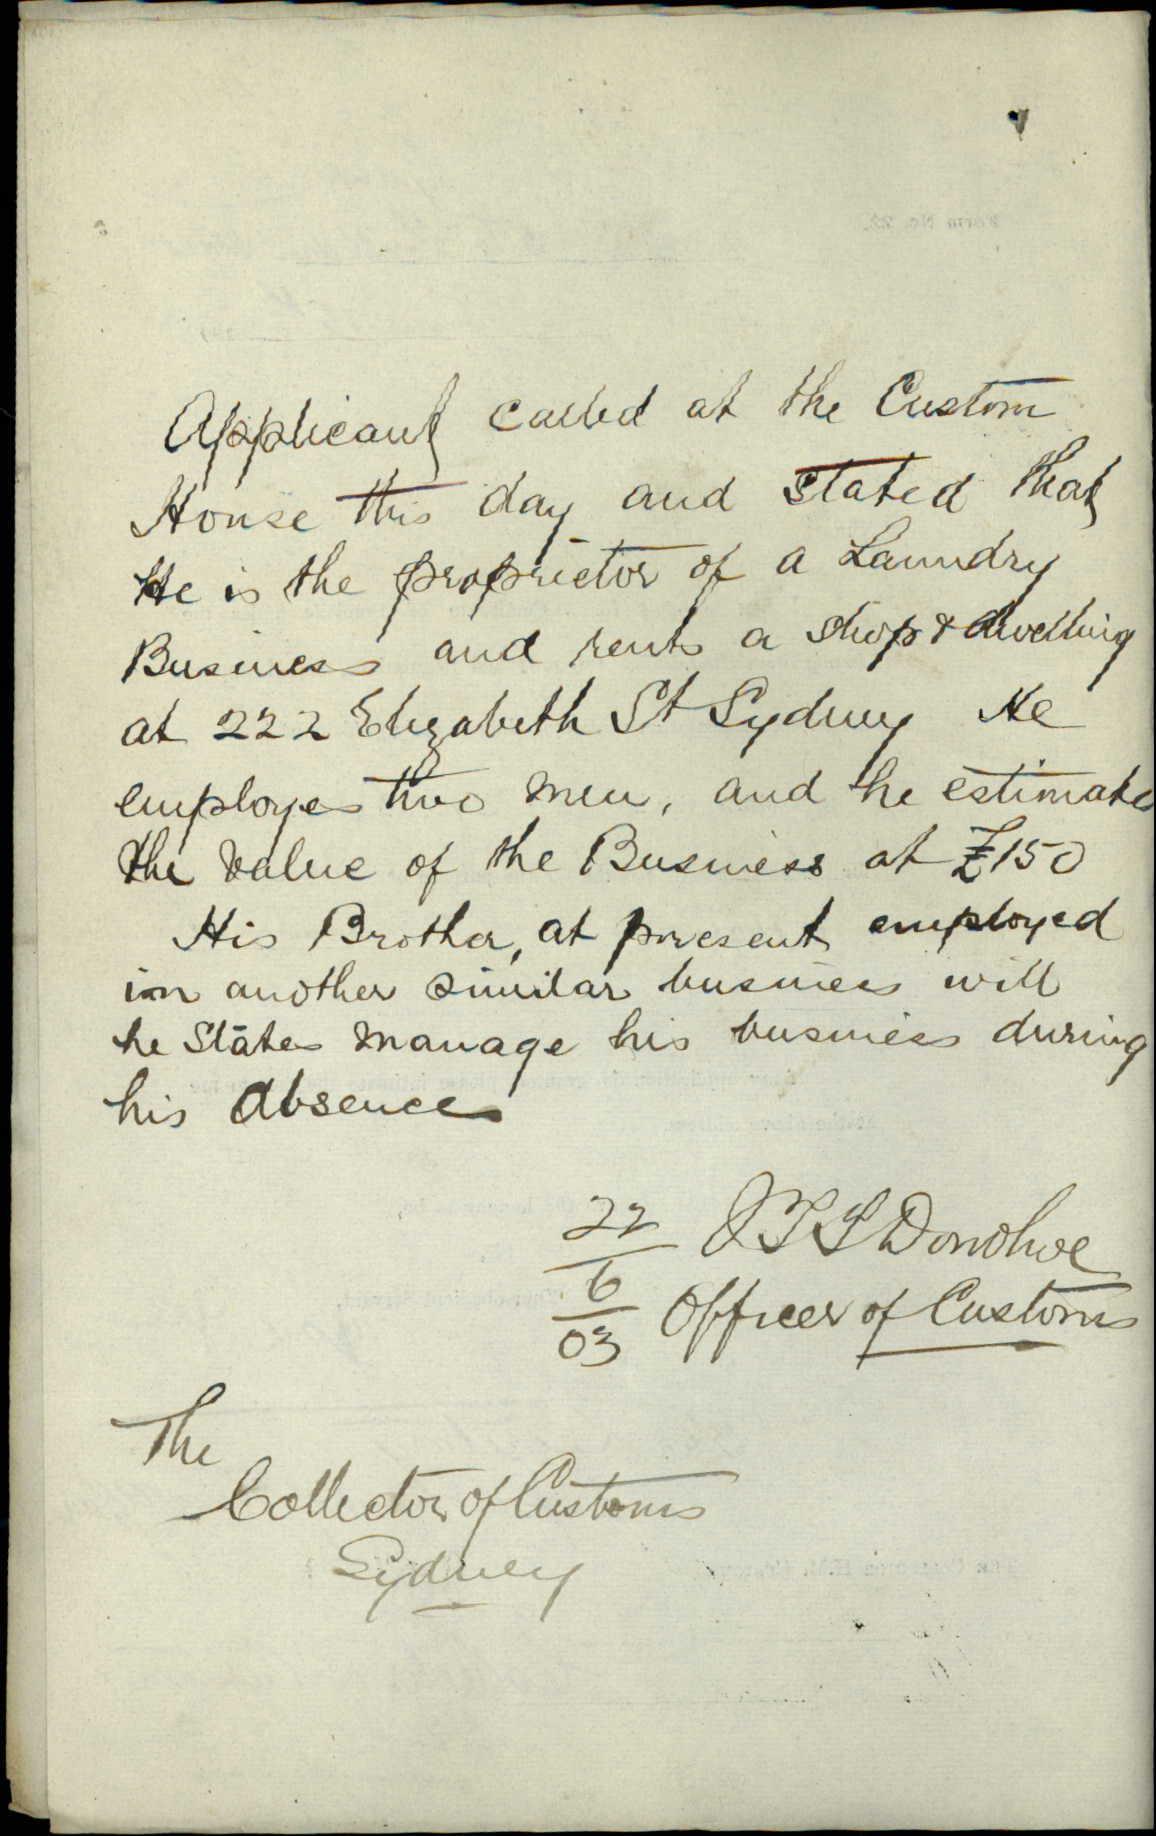 Applicant called at the Custom
House this day and stated that
He is the proprietor of a Laundry
Business and rents a shop & dwelling
at 222 Elizabeth St Sydney He
employes two men, and he estimates
the value of the Business at £150
His Brother, at present employed
in another similar business will
he States manage his business during
his absence
22/6/03 Donohoe
Officer of Customs
The
Collector of Customs
Sydney